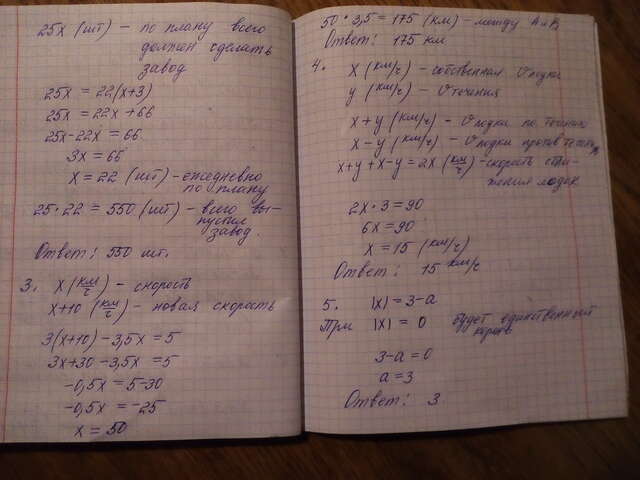 25x (шт) – по плану всего
должен сделать
завод
25x = 22(x+3)
25x = 22x + 66
25x-22x = 66
3x = 66
x = 22 (шт) - ежедневно
по плану
25 · 22 = 550 (шт) - всего вы-
пустил
завод.
Ответ: 550 шт.
3. x (км/ч) - скорость
x+10 (км/ч) - новая скорость
3(x+10) - 3,5x = 5
3x+30 - 3,5x = 5
-0,5x = 5-30
-0,5x = -25
x = 50
50 · 3,5 = 175 (км) - между А и В
Ответ: 175 км
4.
x (км/ч) - собственная V лодки
y (км/ч) - V течения
x+y (км/ч) - V лодки по течению
x-y (км/ч) - V лодки против течения
x+y + x-y = 2x (км/ч) - скорость сбли-
жения лодок
2x · 3 = 90
6x = 90
x = 15 (км/ч)
Ответ: 15 км/ч
5. |x| = 3-a
При |x| = 0 будет единственный
корень
3-a = 0
a = 3
Ответ: 3